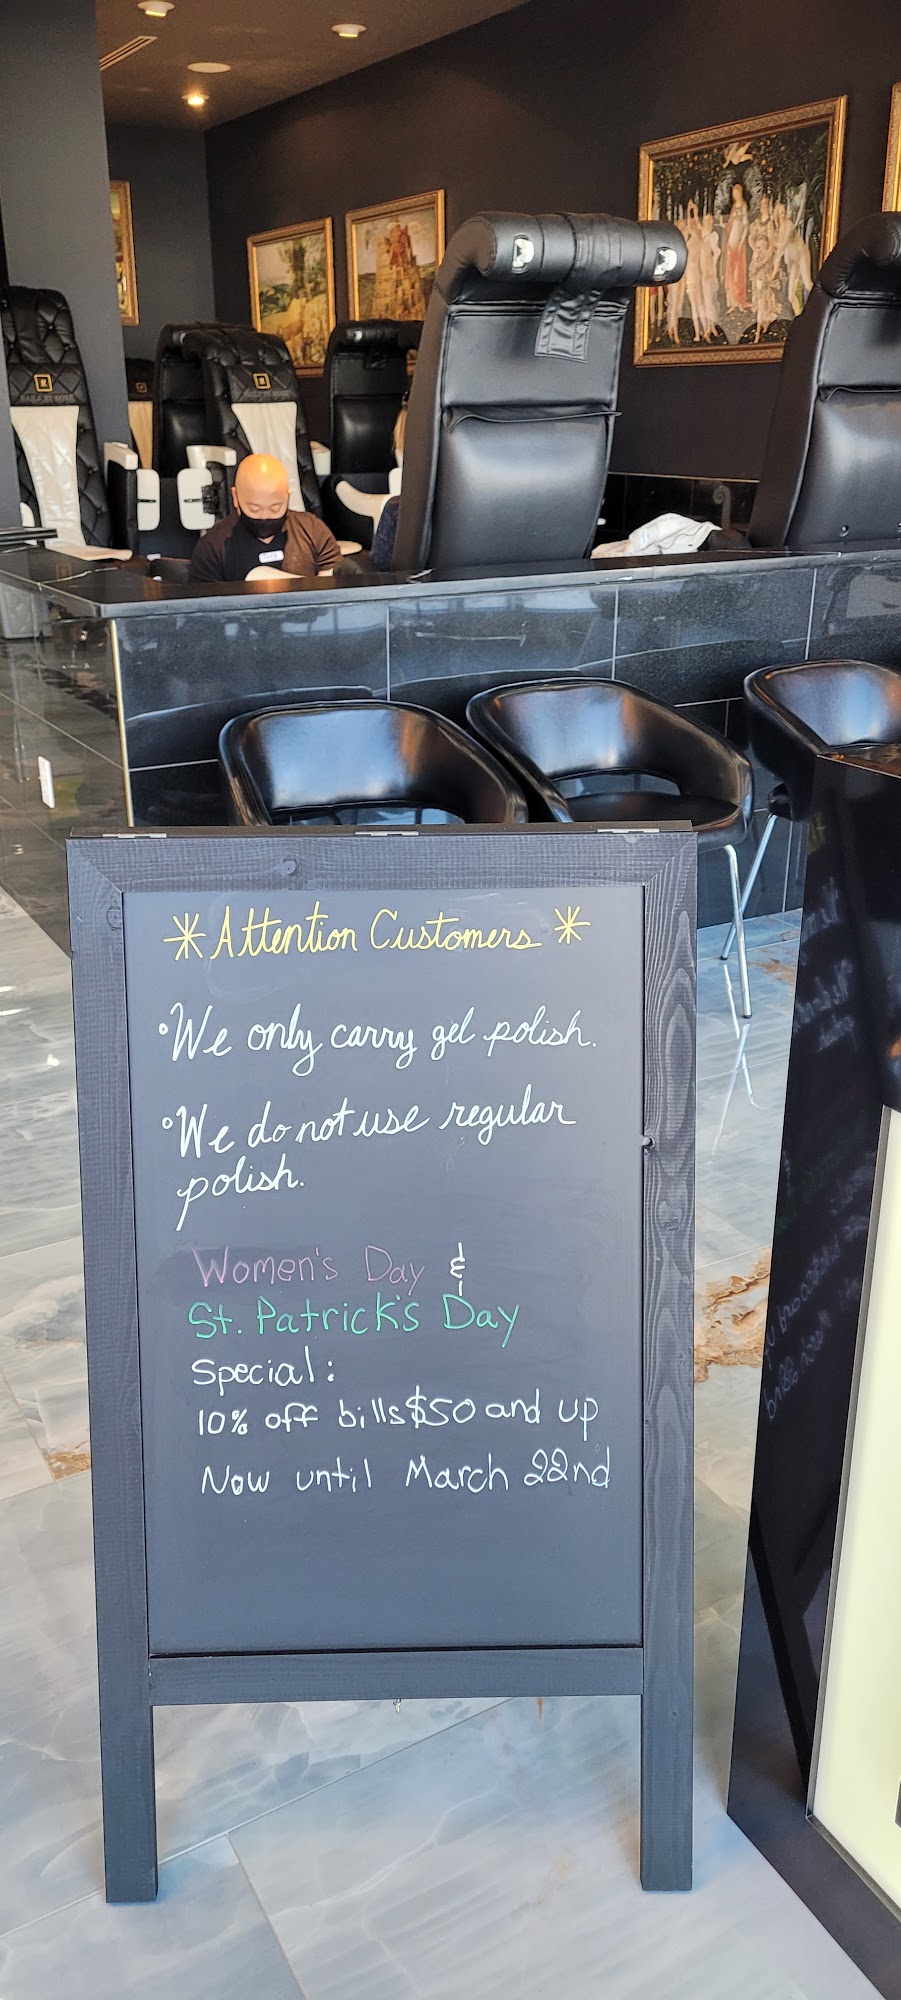 *Attention Customers*
°We only carry gel polish.
°We do not use regular
polish.
Women's Day &
St. Patrick's Day
Special:
10% off bills $50 and up
Now until March 22nd